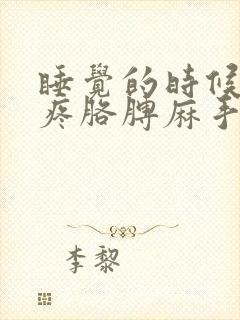 睡覺的時候
疼胳膊麻手
李黎